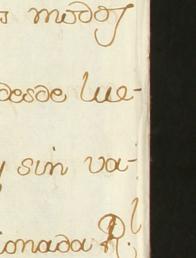 s modos
desde lue-
y sin va-
ionada R.l